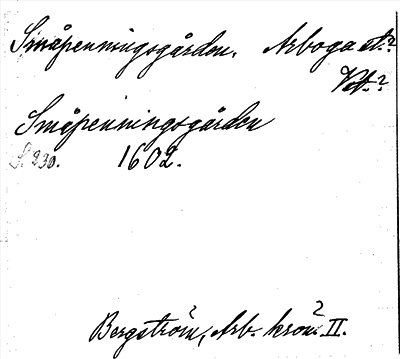 Småpenningsgården. Arboga st.?
Vstm.?
Småpenningsgården
S. 230. 1602.
Bergström, Arb. krön. II.